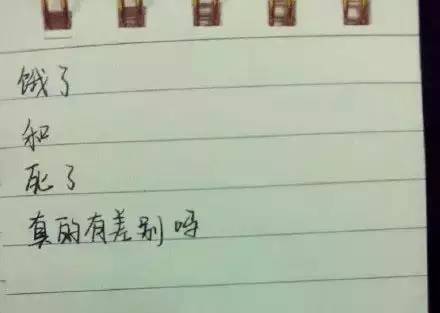 饿了
和
死了
真的有差别吗